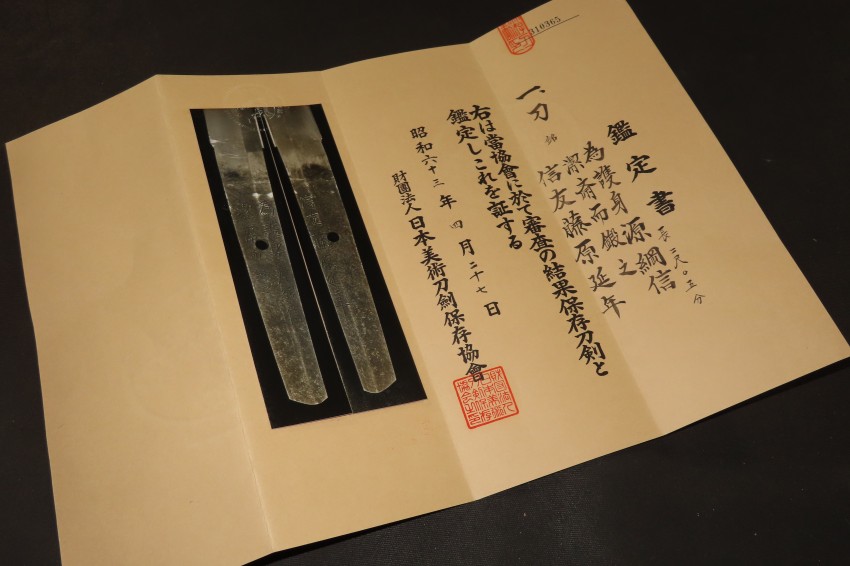 310365
鑑定書
一、刀 銘 為護身源綱信
潔斎而鍛之
信友藤原延年
長 二尺〇五分
右は當協會に於て審査の結果保存刀剣と
鑑定しこれを証する
昭和六十三年四月二十七日
財團法人日本美術刀剣保存協會